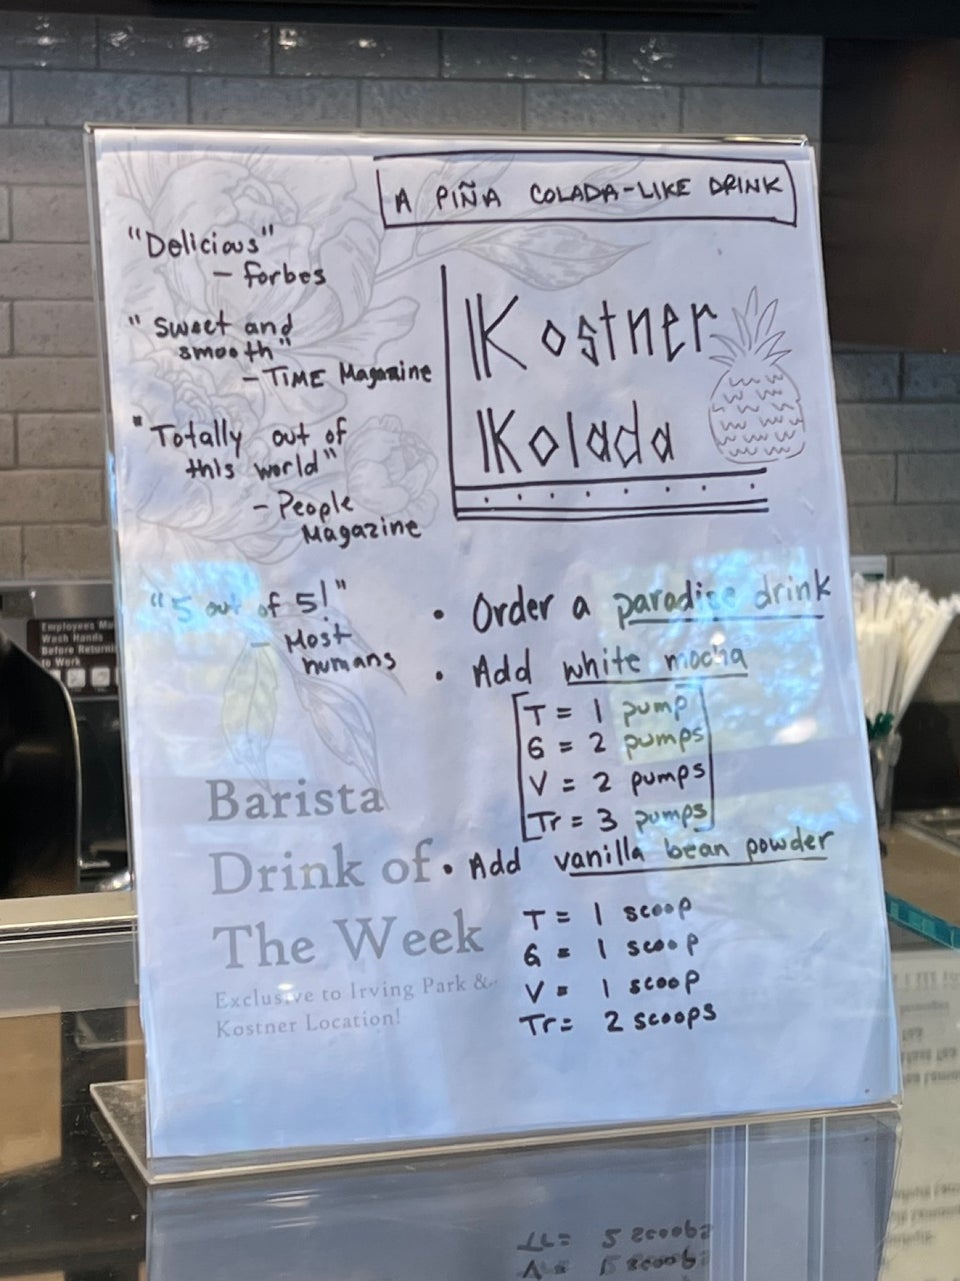 A PIÑA COLADA-LIKE DRINK
"Delicious"
- Forbes
"Sweet and
smooth"
- TIME Magazine
"Totally out of
this world"
- People
Magazine
"5 out of 5!"
- Most
humans
Kostner
Kolada
• Order a paradise drink
• Add white mocha
T = 1 pump
G = 2 pumps
V = 2 pumps
Tr = 3 pumps
• Add vanilla bean powder
T = 1 scoop
G = 1 scoop
V = 1 scoop
Tr = 2 scoops
Barista
Drink of
The Week
Exclusive to Irving Park &
Kostner Location!
Employees Mu
Wash Hands
Before Returni
to Work